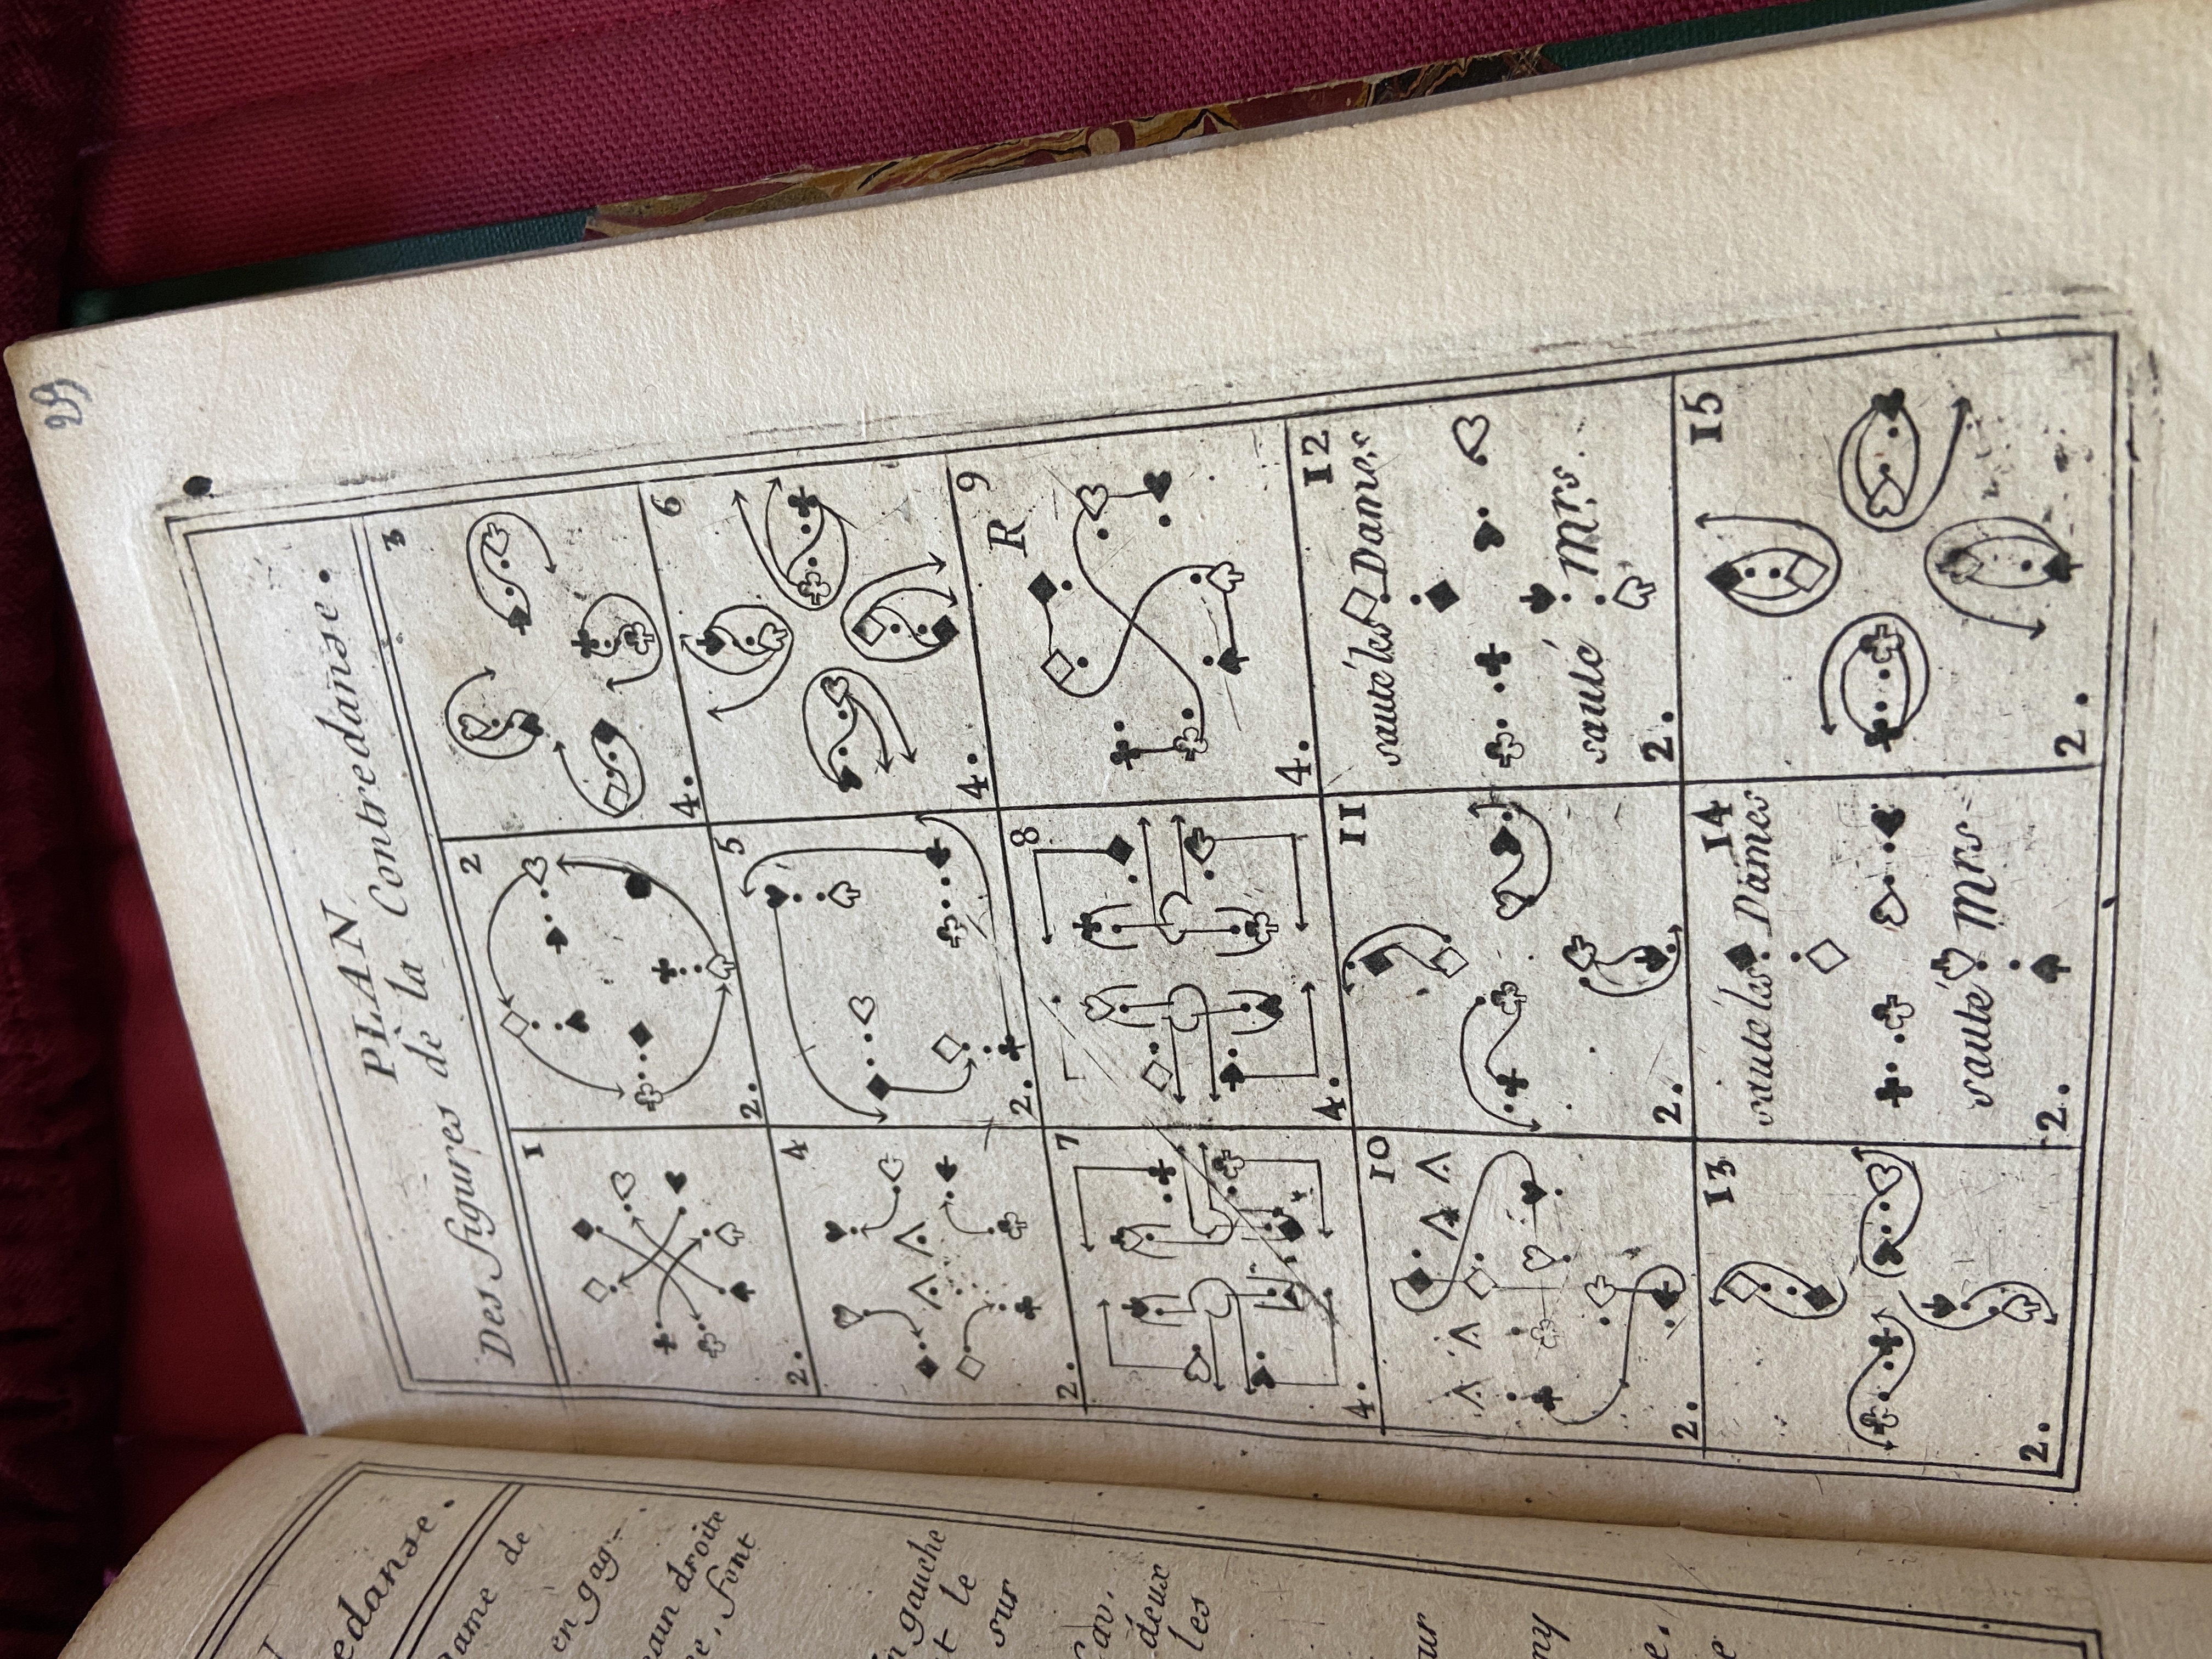 29
PLAN
Des figures de la Contredanse.
1
2.
2
2.
3
4.
4
2.
5
2.
6
4.
7
4.
8
4.
9
R
4.
10
2.
11
2.
12
sauté les Dames
sauté Mrs.
2.
13
2.
14
sauté les Dames
sauté Mrs
2.
15
2.
edanse.
ame de
en gag-
droite
e, font
gauche
t le
sur
Cav.
deux
les
ur
ny
e.
e